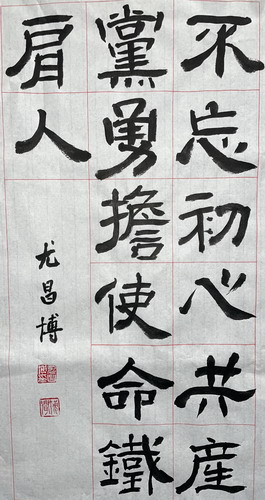 不忘初心共産
黨勇擔使命鐵
肩人
尤昌博